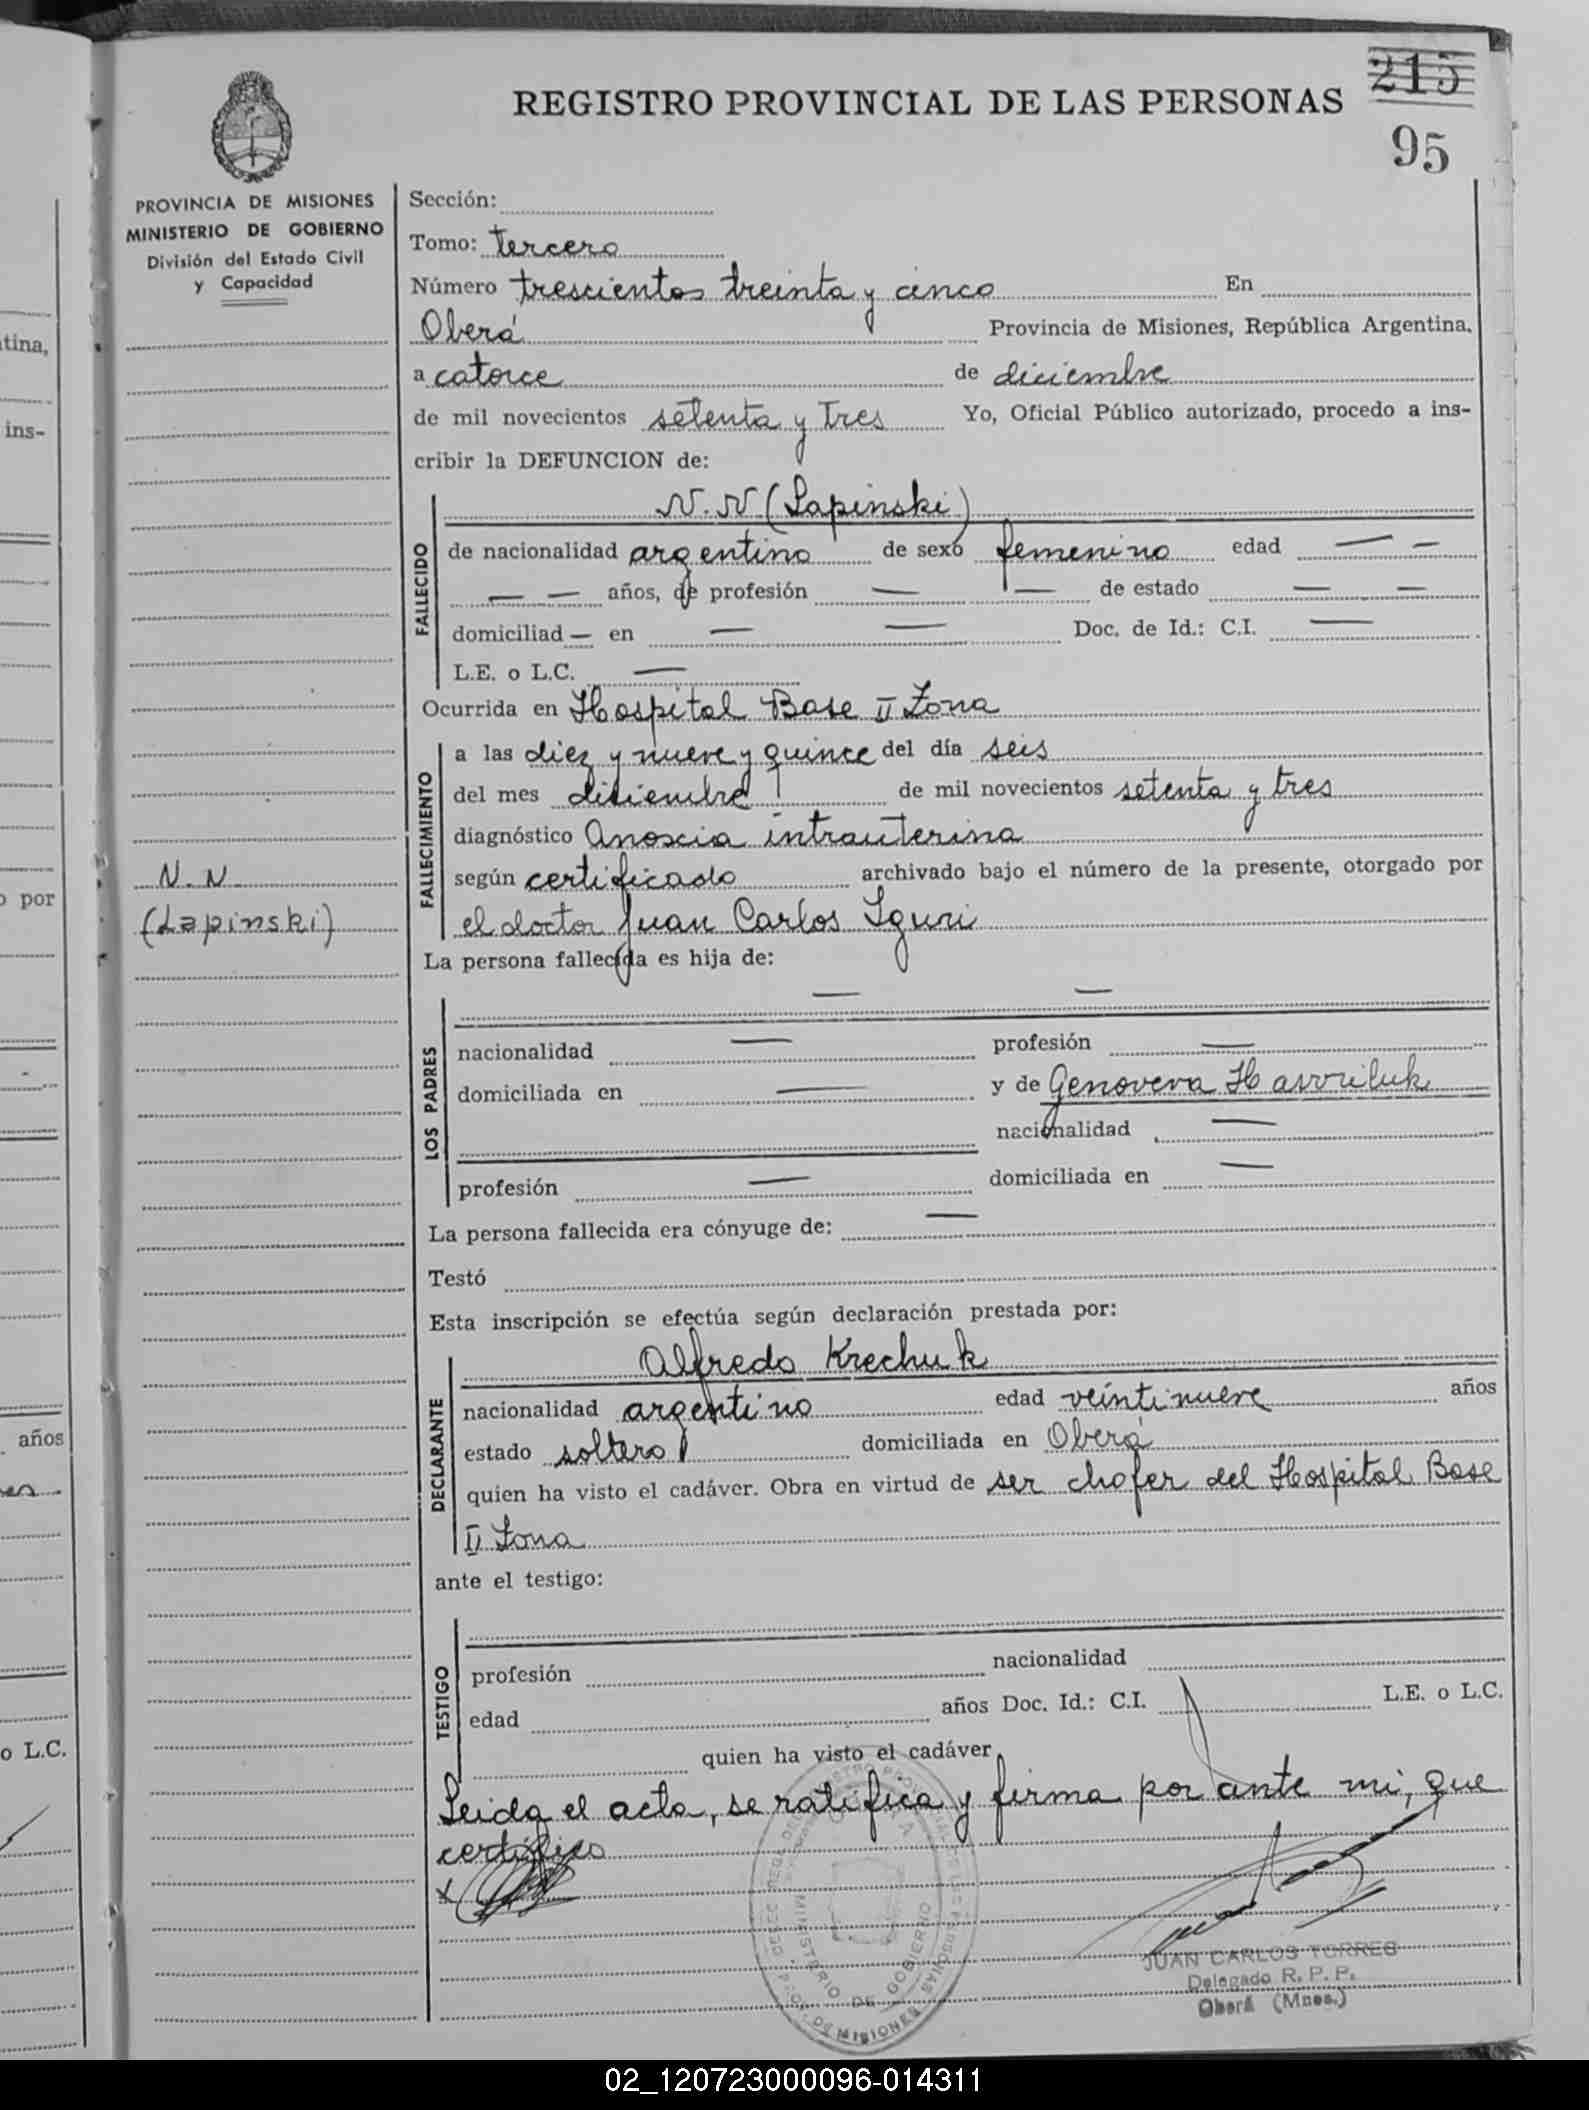 215
REGISTRO PROVINCIAL DE LAS PERSONAS
95
PROVINCIA DE MISIONES
MINISTERIO DE GOBIERNO
División del Estado Civil
y Capacidad
Sección:
Tomo: tercero
Número trescientos treinta y cinco En
Oberá Provincia de Misiones, República Argentina,
a catorce de diciembre
de mil novecientos setenta y tres Yo, Oficial Público autorizado, procedo a ins-
cribir la DEFUNCION de:
FALLECIDO
N.N (Lapinski)
de nacionalidad argentino de sexo femenino edad — —
— — años, de profesión — — de estado — —
domiciliad — en — — Doc. de Id.: C.I. —
L.E. o L.C. —
Ocurrida en Hospital Base II Zona
FALLECIMIENTO
a las diez y nueve y quince del día seis
del mes diciembre de mil novecientos setenta y tres
diagnóstico Anoscia intrauterina
según certificado archivado bajo el número de la presente, otorgado por
el doctor Juan Carlos Iguri
N.N
(Lapinski)
La persona fallecida es hija de:
LOS PADRES
— —
nacionalidad — profesión —
domiciliada en — y de Genoveva Havriluk
nacionalidad —
profesión — domiciliada en —
La persona fallecida era cónyuge de: —
Testó
Esta inscripción se efectúa según declaración prestada por:
DECLARANTE
Alfredo Krechuk
nacionalidad argentino edad veintinueve años
estado soltero domiciliada en Oberá
quien ha visto el cadáver. Obra en virtud de ser chofer del Hospital Base
II Zona
ante el testigo:
TESTIGO
profesión nacionalidad
edad años Doc. Id.: C.I. L.E. o L.C.
quien ha visto el cadáver
Leida el acta, se ratifica y firma por ante mi, que
certifico
x
MINISTERIO DE GOBIERNO
PROV. DE MISIONES
JUAN CARLOS TORRES
Delegado R. P. P.
Oberá (Mnes.)
tina,
ins-
o por
años
o L.C.
02_120723000096-014311